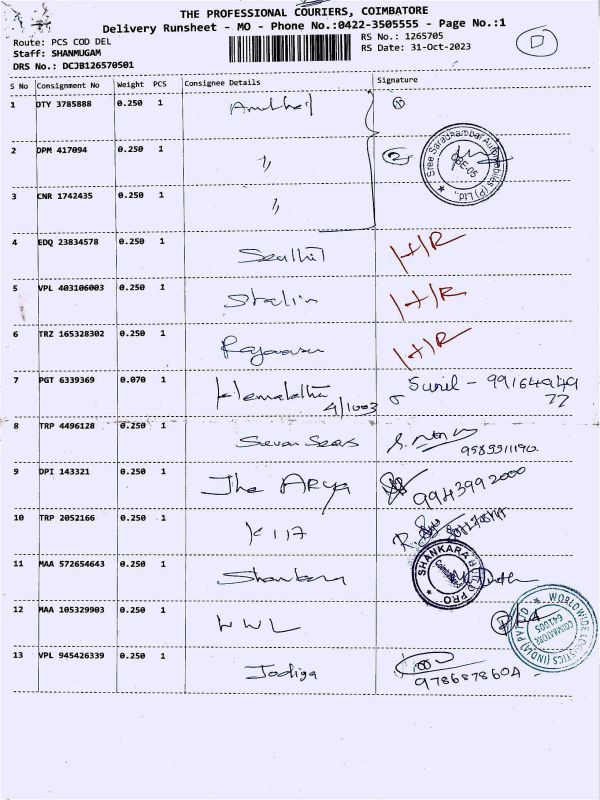 THE PROFESSIONAL COURIERS, COIMBATORE
Delivery Runsheet - MO - Phone No.:0422-3505555 - Page No.:1
Route: PCS COD DEL
Staff: SHANMUGAM
DRS No.: DCJB126570501
RS No.: 1265705
RS Date: 31-Oct-2023
D
S No Consignment No Weight PCS Consignee Details Signature
1 OTY 3785888 0.250 1
2 DPM 417094 0.250 1 "
Sree Saradhambal Automobiles (P) Ltd.,
3 CNR 1742435 0.250 1 "
4 EDQ 23834578 0.250 1 Senthil H/R
5 VPL 403106003 0.250 1 Stalin H/R
6 TRZ 165328302 0.250 1 H/R
7 PGT 6339369 0.070 1 Hemalatha Sunil - 99164949
4/1003 77
8 TRP 4496128 0.250 1 Seven Seas
9 DPI 143321 0.250 1 The ARya 9943992000
10 TRP 2052166 0.250 1 K 117
11 MAA 572654643 0.250 1 Shankara SHANKARA BUILD PRO
12 MAA 105329903 0.250 1 WWL
WORLDWIDE LOGISTICS (INDIA) PVT LTD
COIMBATORE
641005
13 VPL 945426339 0.250 1 Jodiga
9786878604